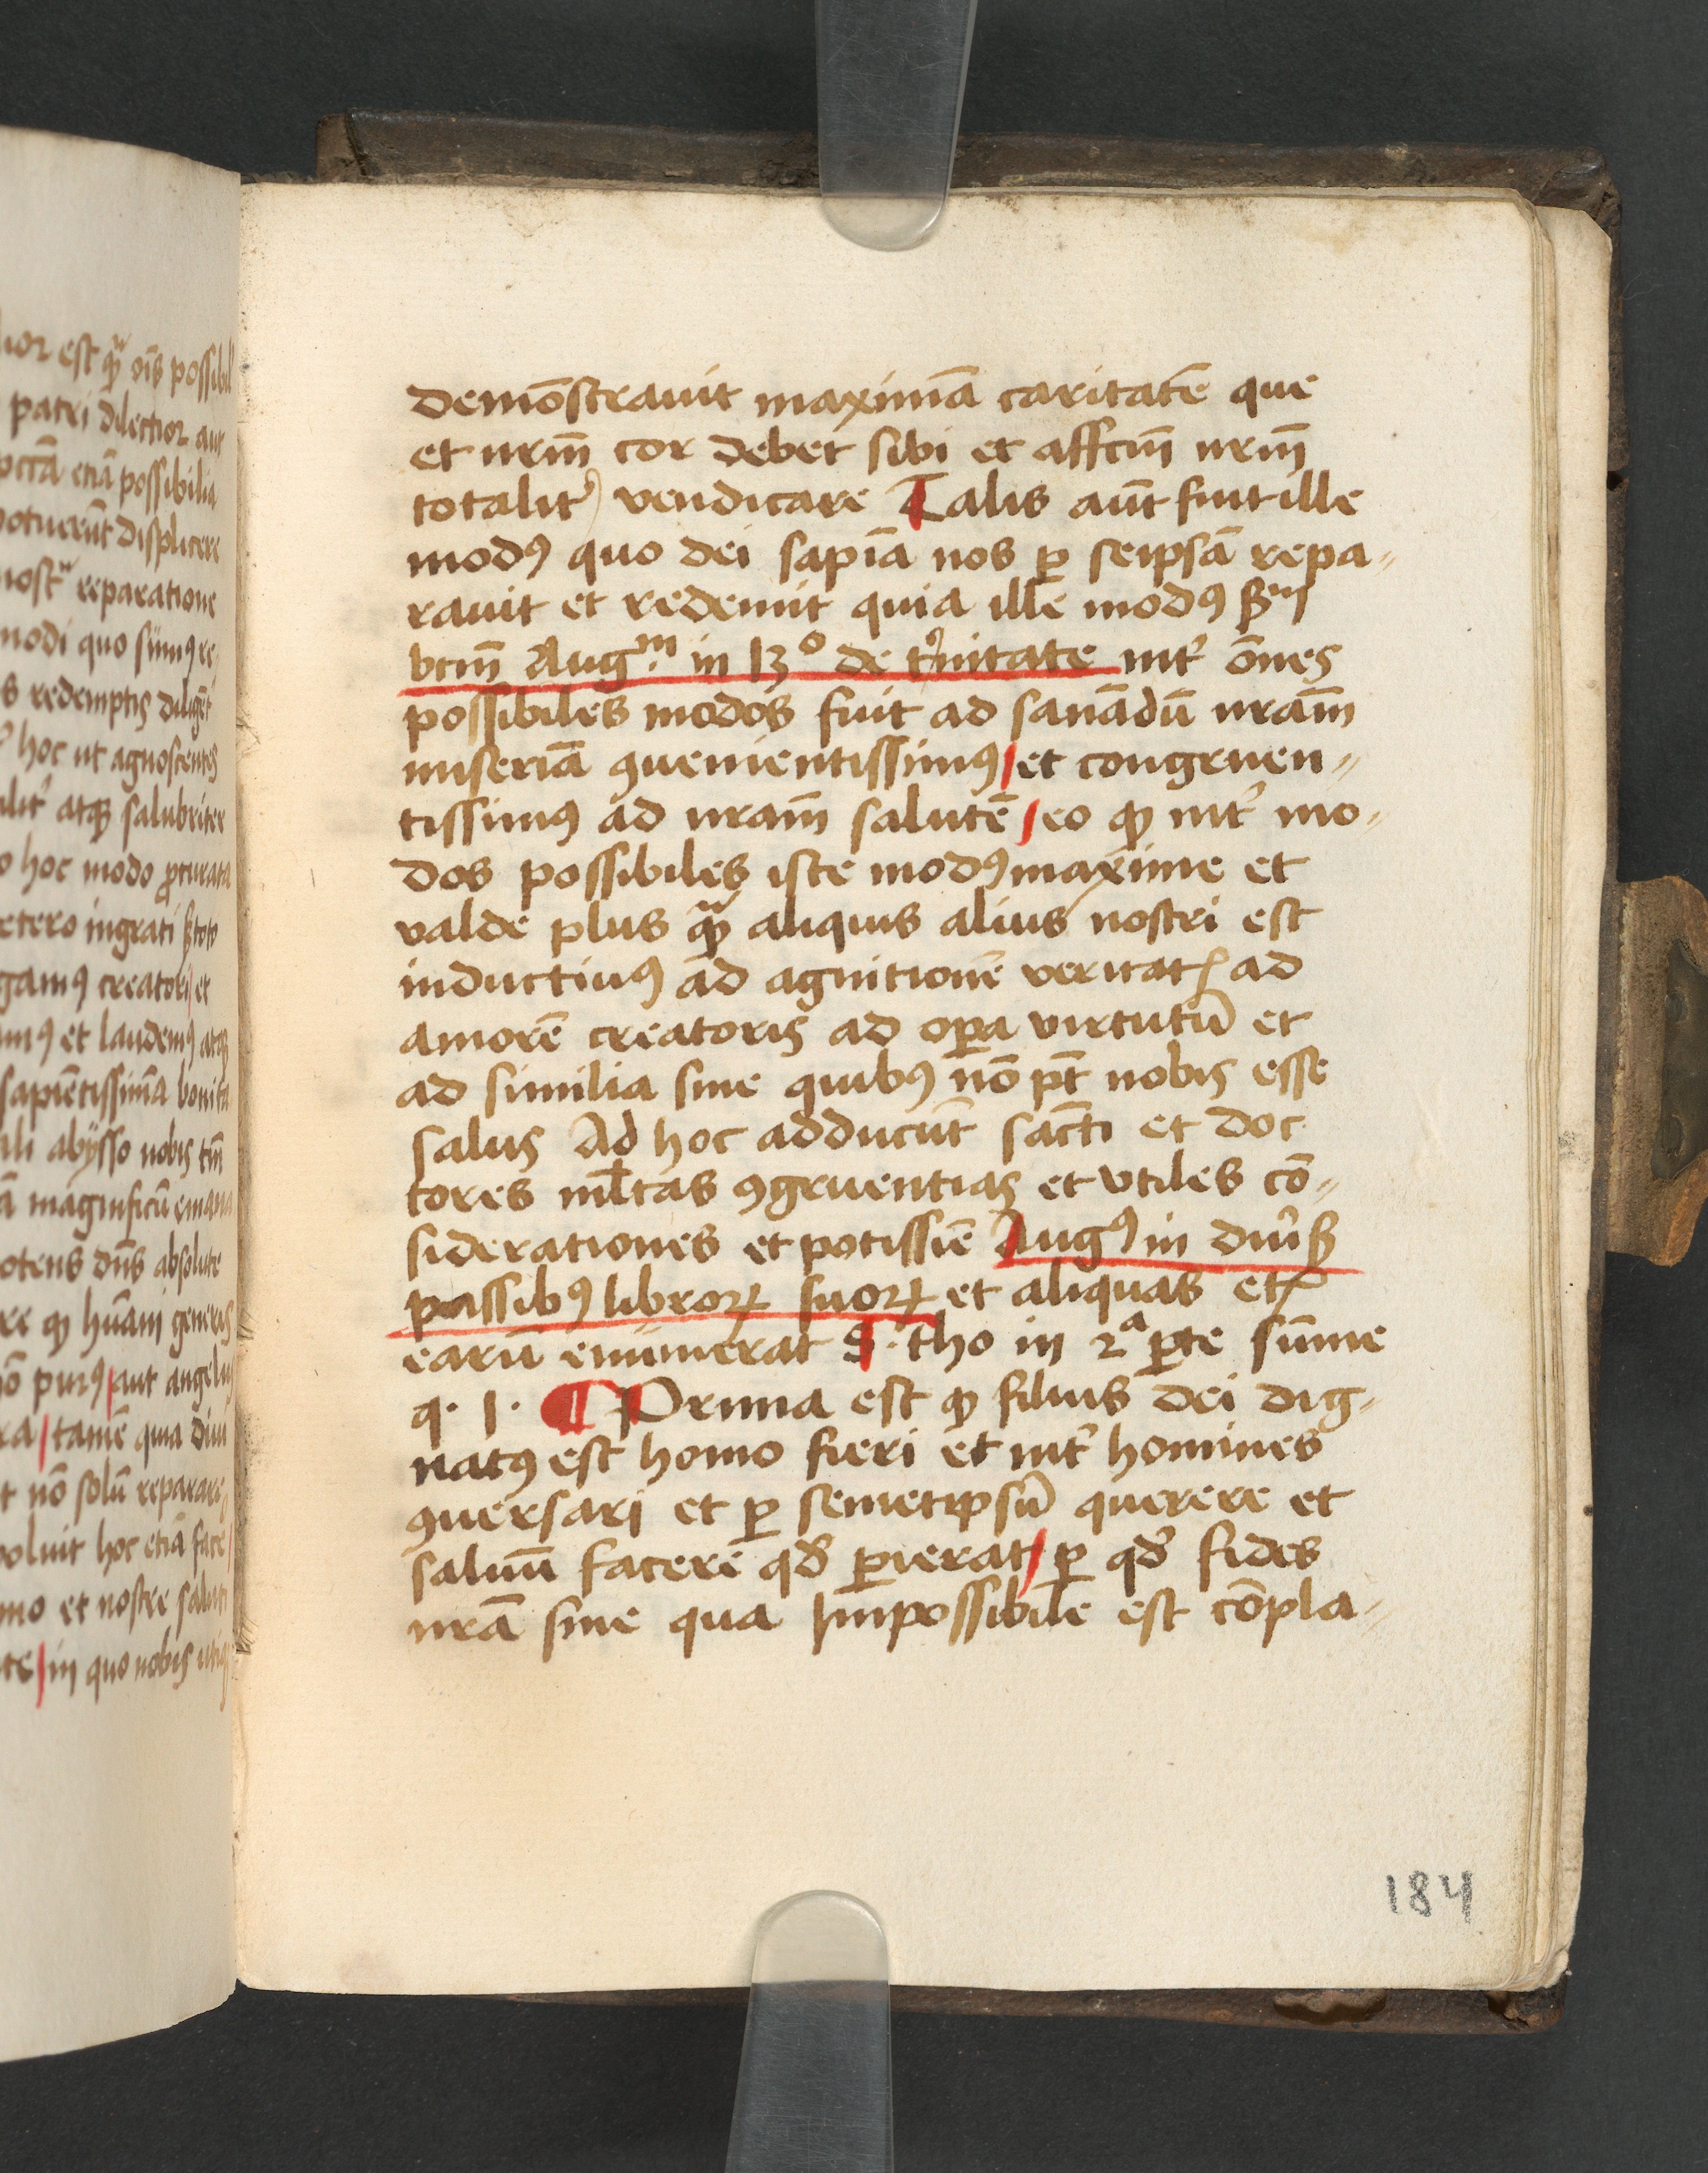 lior est qᷓ oīs possibil
patri dilectior aut
etiā possibilia
potuerūt displicere
reparatione
modi quo sumꝰ re-
s redemptis
hoc ut agnoscentes
atqꝫ salubriter
o hoc modo ꝓcurata
etero ingrati
gamꝰ creatori et
et laudemꝰ atqꝫ
sapiētissimā
abÿsso nobis tm̄
ā magnificū
otens dn̄s absolute
re ꝙ hūani generis
nō purꝰ aut angelus
ra tamē quia
t nō solū reparare
voluit hoc etiā face
mo et nostre saluti
te in quo nobis
demōstrauit maximā caritatē que
et nrm̄ cor debet sibi et affcm̄ nrm̄
totalit᷑ vendicare Talis aūt fuit ille
modꝰ quo dei sapīa nos ꝑ seipsā repa⸗
rauit et redemit quia ille modꝰ ẞm
btm̄ Augᵐ. in 13º de tͥnitate int᷑ ōnes
possibiles modos fuit ad sanādū nrām
miseriā ꝯuenientissimꝰ et congruen⸗
tissimꝰ ad nrām salutē eo ꝙ int᷑ mo⸗
dos possibiles iste modꝰ maxime et
valde plus qᷓ aliquis alius nostri est
inductiuꝰ ad agnitionē veritatꝭ ad
amorē creatoris ad oꝑa virtutū et
ad similia sine quibꝰ nō pt̄ nobis esse
salus Ad hoc adducūt sācti et doc
tores ml̄tas ꝯgruentias et vtiles cō⸗
siderationes et potissīe Augꝰ in diu᷑ẞ
passibꝰ libroꝝ suoꝝ et aliquas etꝭ
earū enumerat S. tho in 2ª ꝑte sūme
q. 1. ¶ Prima est ꝙ filius dei dig⸗
natꝰ est homo fieri et int᷑ homines
ꝯuersari et ꝑ semetipsū querere et
saluū facere qd᷑ ꝑierat ꝑ qd᷑ fides
nrā sine qua Impossibile est cōpla⸗
184